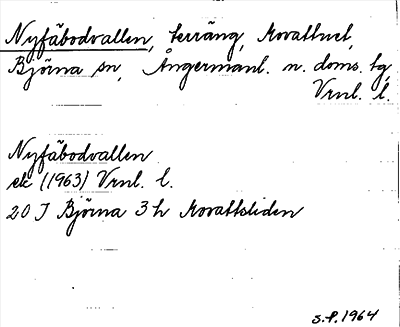 Nyfäbodvallen, terräng, Kovattnet,
Björna sn, Ångermanl. n. doms. tg,
Vrnl. l.
Nyfäbodvallen
ek (1963) Vrnl. l.
20 J Björna 3 h Kovattsliden
S.P. 1964